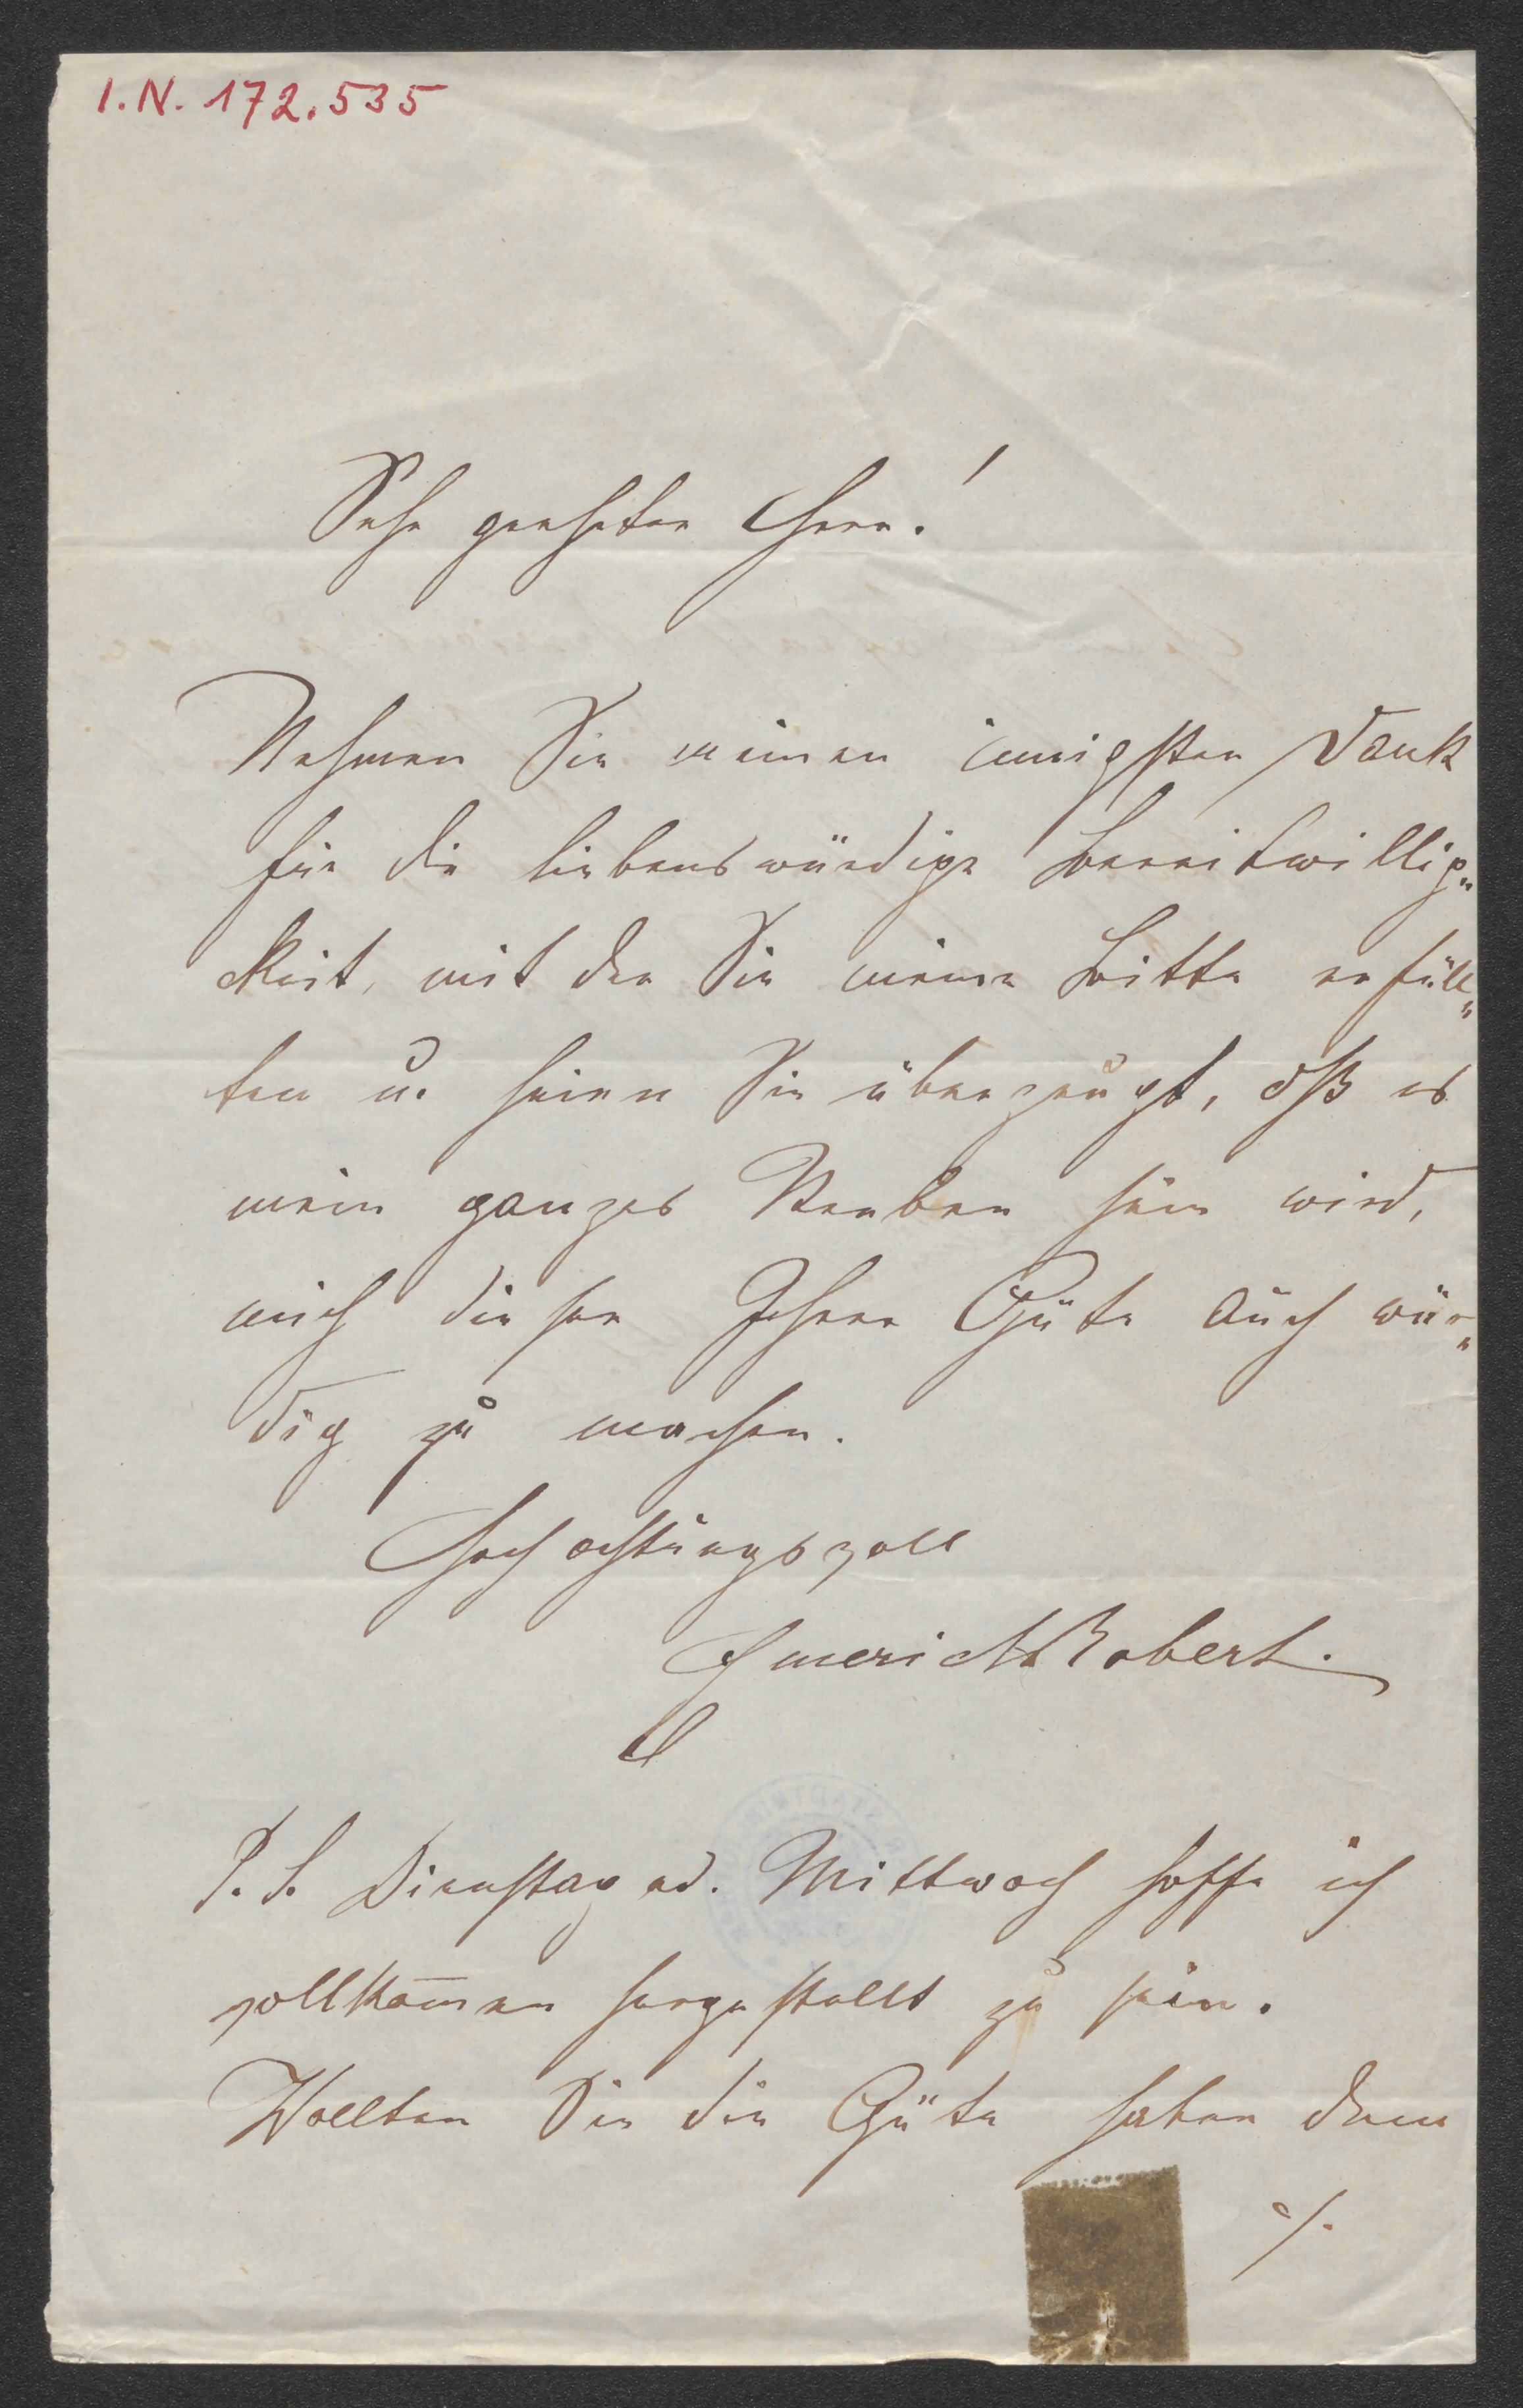 I.N. 172.535
Sehr geehrter Herr!
Nehmen Sie meinen innigsten Dank
für die liebenswürdige Bereitwillig„
keit, mit der Sie meine Bitte erfüll„
ten u. seien Sie überzeugt, dß es
mein ganzes Streben sein wird,
mich dieser Ihrer Güte auch wür„
dig zu machen.
Hochachtungsvoll
Emerich Robert.
P. S. Dienstag od. Mittwoch hoffe ich
vollkom̄en hergestellt zu sein.
Wollten Sie die Güte haben dem
./.